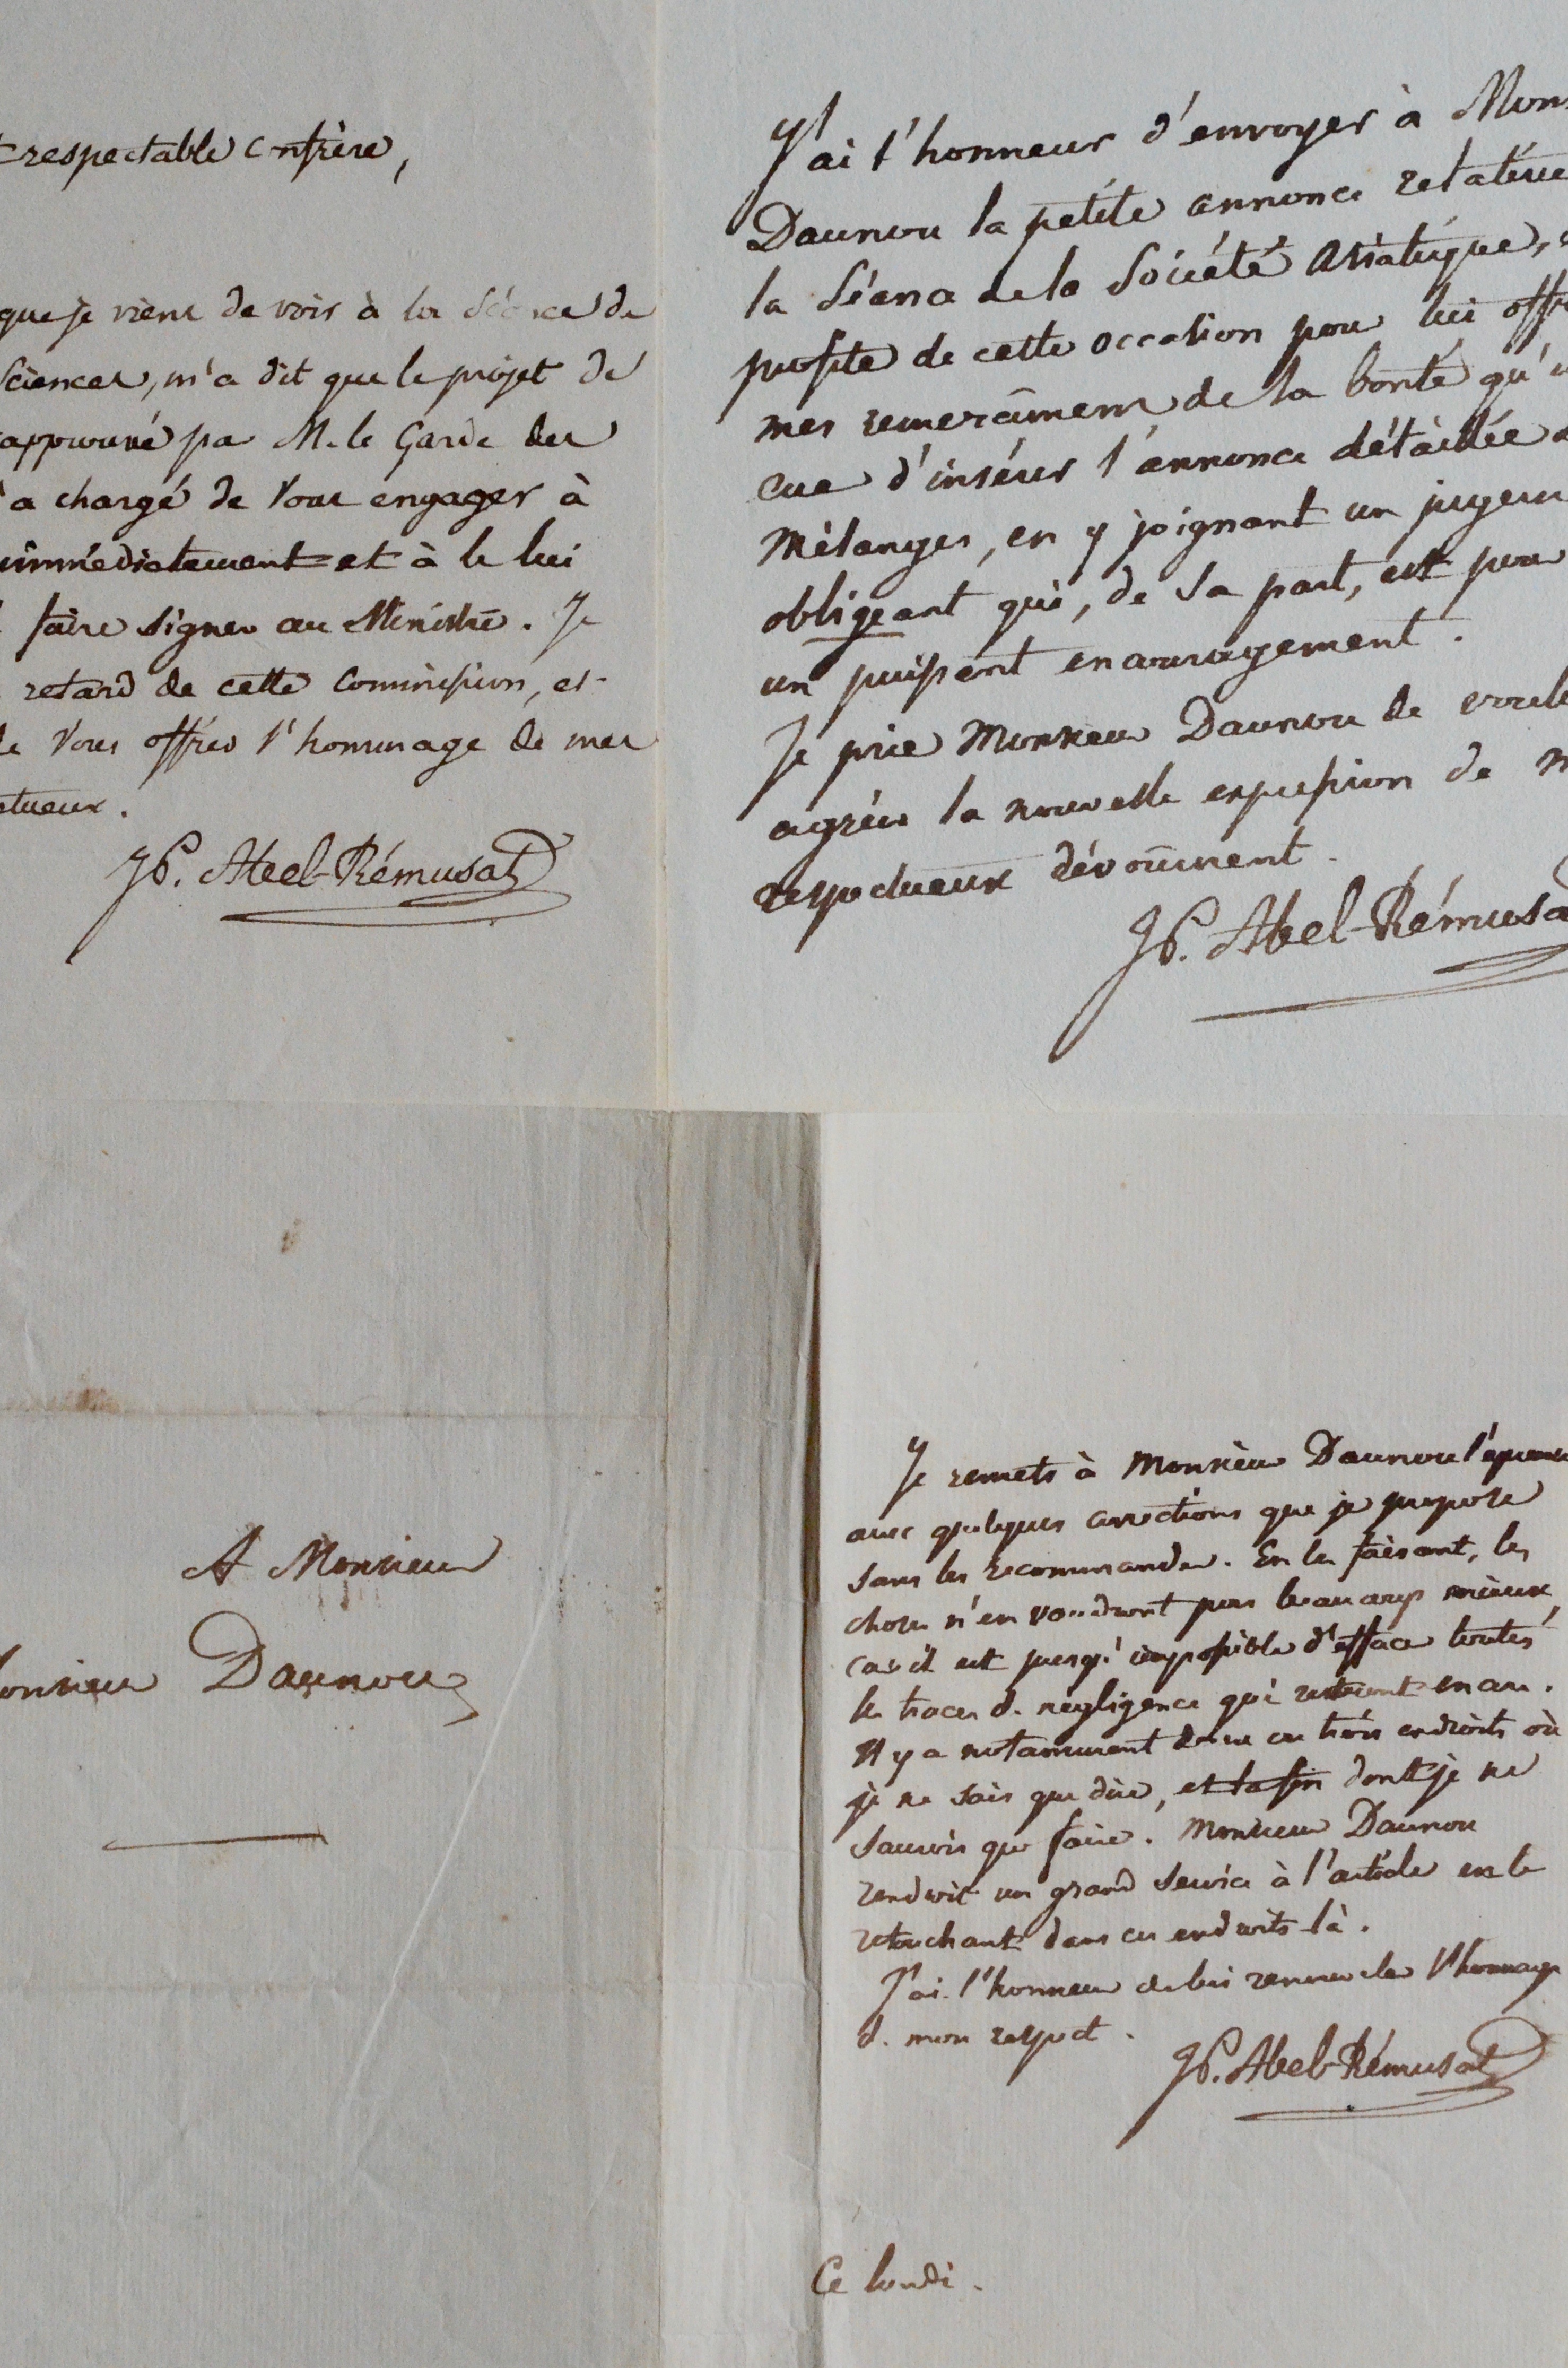 respectable confrère,
que je viens de voir à la Séance de
Sciences, m'a dit que le projet de
approuvé pa M. le Garde des
a chargé de vous engager à
immédiatement et à le lui
faire signer au Ministre. Je
retard de cette commission, et
Vous offrir l'hommage de mes
ctueux.
JP. Abel-Rémusat
J'ai l'honneur d'envoyer à Mons
Daunou la petite annonce relative
la Séance de la Société Asiatique,
profite de cette occasion pour lui offr
mes remercîmens de la bonté qu'i
eue d'insérer l'annonce détaillée
Mélanges, en y joignant un jugem
obligeant qui, de sa part, est pour
un puissant encouragement.
Je prie Monsieur Daunou de voul
agréer la nouvelle expression de m
respectueux dévoûment.
JP. Abel-Rémusa
A Monsieur
onsieur Daunou
Je remets à Monsieur Daunou l'épreuve
avec quelques corrections que je propose
sans les recommander. En les faisant, les
choses n'en vaudront pas beaucoup mieux,
car il est presqu'impossible d'effacer toutes
les traces de négligence qui
Il y a notamment deux ou trois endroits où
je ne sais que dire, et la fin dont je ne
saurois que faire. Monsieur Daunou
rendroit un grand service à l'article en le
retouchant dans ces endroits-là.
J'ai l'honneur de lui renouveler l'hommage
de mon respect.
JP. Abel-Rémusat
Ce lundi.